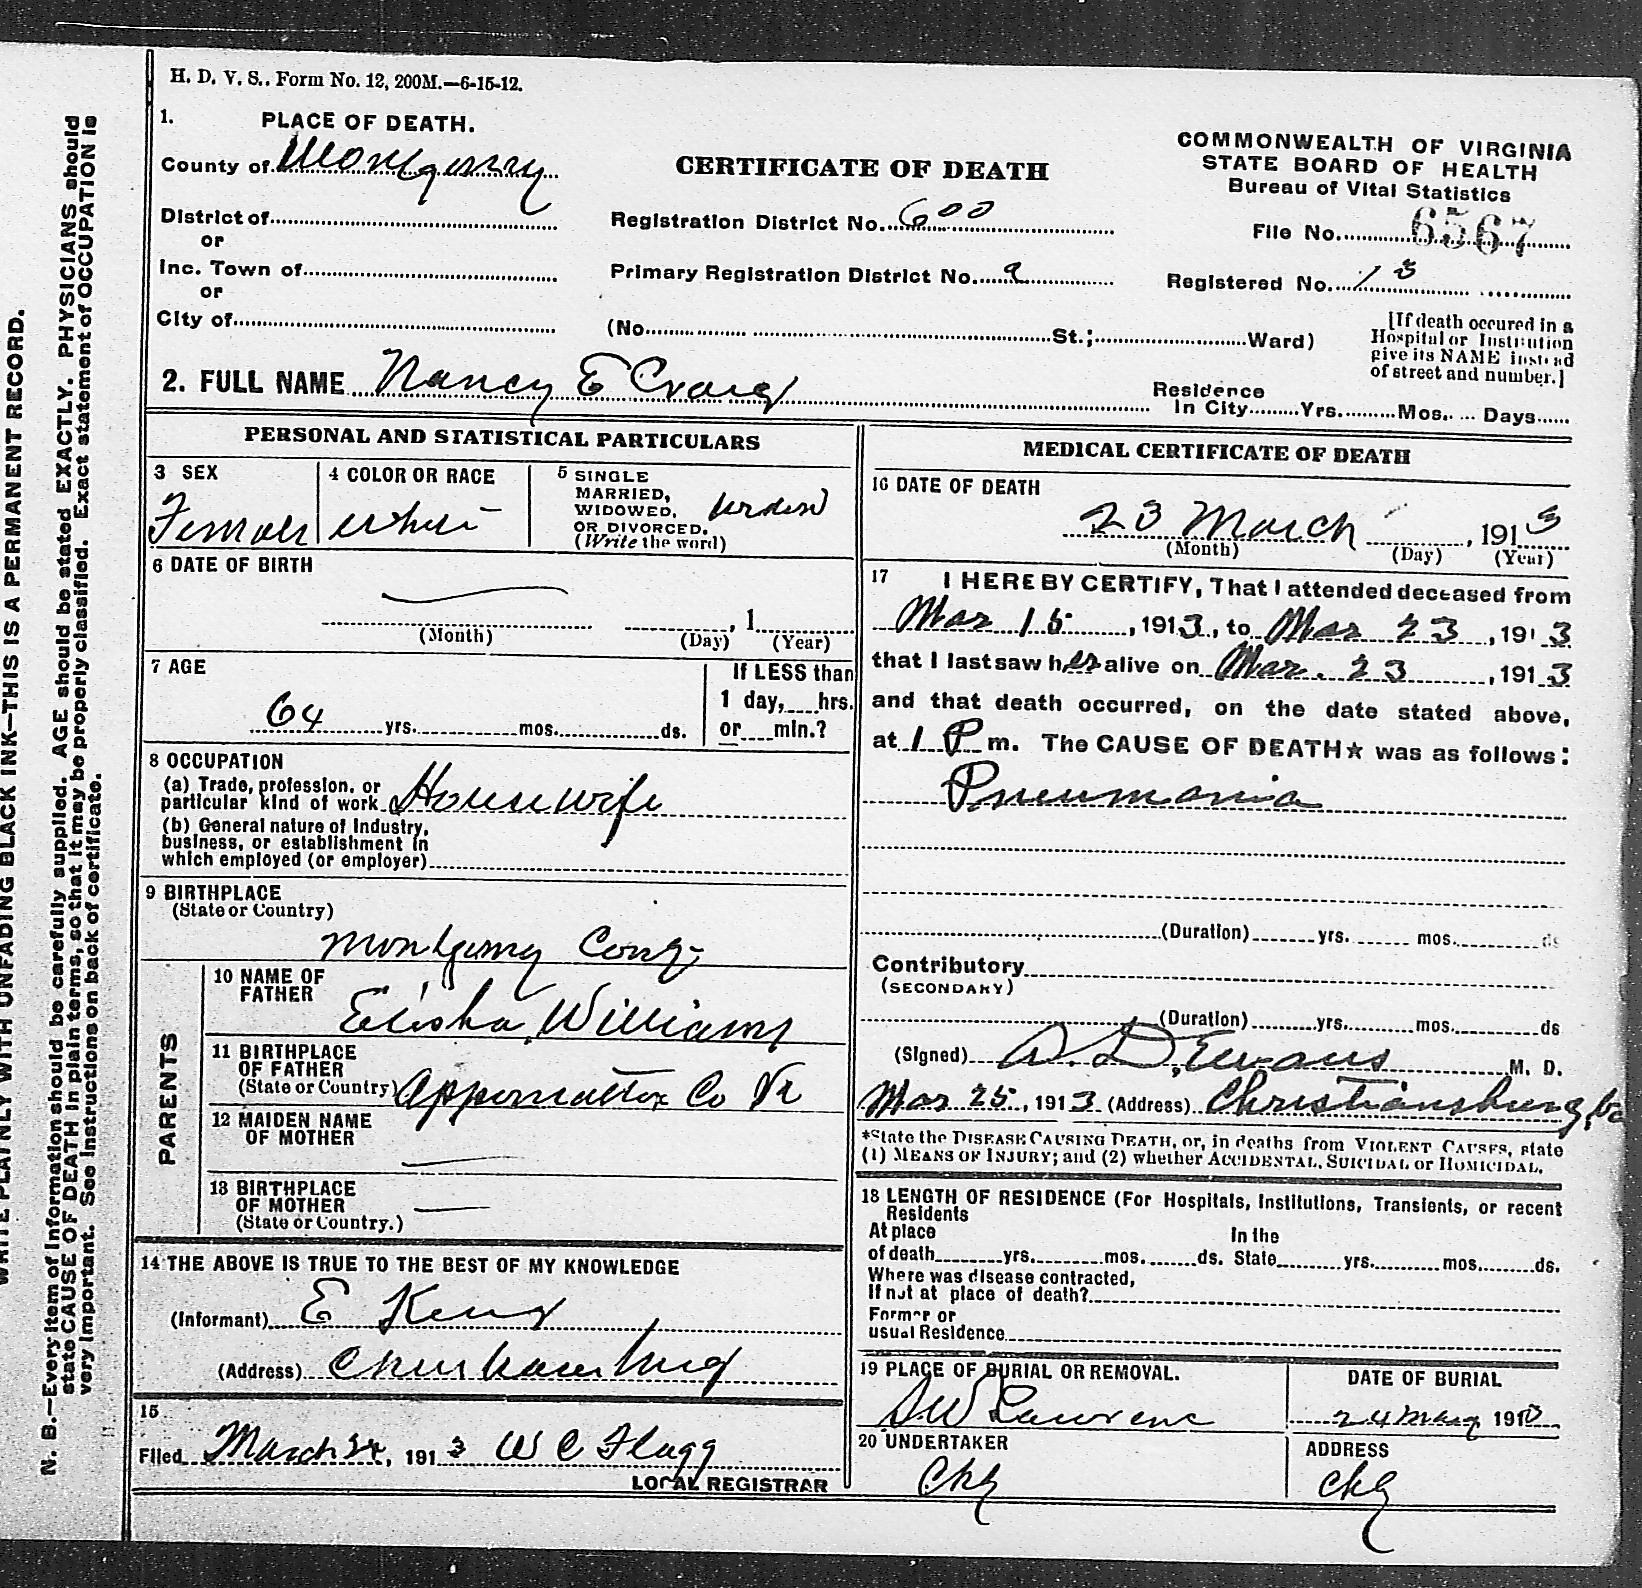 H. D. V. S., Form No. 12, 200M.—6-15-12.
1. PLACE OF DEATH.
County of Montgomery
District of
or
Inc. Town of
or
City of
CERTIFICATE OF DEATH
Registration District No. 600
Primary Registration District No. 9
(No. St.; Ward)
COMMONWEALTH OF VIRGINIA
STATE BOARD OF HEALTH
Bureau of Vital Statistics
File No. 6567
Registered No. 13
[If death occured in a
Hospital or Institution
give its NAME instead
of street and number.]
2. FULL NAME Nancy E Craig
Residence
In City Yrs. Mos. Days
PERSONAL AND STATISTICAL PARTICULARS
3 SEX
Female
4 COLOR OR RACE
White
5 SINGLE
MARRIED,
WIDOWED,
OR DIVORCED.
(Write the word)
6 DATE OF BIRTH
, 1
(Month) (Day) (Year)
7 AGE
64 yrs. mos. ds.
If LESS than
1 day, hrs.
or min.?
8 OCCUPATION
(a) Trade, profession, or
particular kind of work Housewife
(b) General nature of Industry,
business, or establishment in
which employed (or employer)
9 BIRTHPLACE
(State or Country)
Montgomry
PARENTS
10 NAME OF
FATHER
Elisha Williams
11 BIRTHPLACE
OF FATHER
(State or Country) Appomattox Co Va
12 MAIDEN NAME
OF MOTHER —
13 BIRTHPLACE
OF MOTHER —
(State or Country.)
14 THE ABOVE IS TRUE TO THE BEST OF MY KNOWLEDGE
(Informant) E
(Address)
15
Filed March 24, 1913 W C Flagg
LOCAL REGISTRAR
MEDICAL CERTIFICATE OF DEATH
16 DATE OF DEATH
23 March , 1913
(Month) (Day) (Year)
17 I HEREBY CERTIFY, That I attended deceased from
Mar 15, 1913, to Mar 23, 1913
that I last saw her alive on Mar. 23, 1913
and that death occurred, on the date stated above,
at 1 P m. The CAUSE OF DEATH★ was as follows:
Pneumonia
(Duration) yrs. mos. ds
Contributory
(SECONDARY)
(Duration) yrs. mos. ds
(Signed) Evans M. D.
Mar 25, 1913 (Address) Christiansburg, Va
*State the DISEASE CAUSING DEATH, or, in deaths from VIOLENT CAUSES, state
(1) MEANS OF INJURY; and (2) whether ACCIDENTAL, SUICIDAL or HOMICIDAL.
18 LENGTH OF RESIDENCE (For Hospitals, Institutions, Transients, or recent
Residents
At place In the
of death yrs. mos. ds. State yrs. mos. ds.
Where was disease contracted,
If not at place of death?
Former or
usual Residence
19 PLACE OF BURIAL OR REMOVAL.
DATE OF BURIAL
24 191
20 UNDERTAKER
Chg
ADDRESS
Chg
WRITE PLAINLY WITH UNFADING BLACK INK—THIS IS A PERMANENT RECORD.
N. B.—Every item of information should be carefully supplied. AGE should be stated EXACTLY. PHYSICIANS should
state CAUSE OF DEATH in plain terms, so that it may be properly classified. Exact statement of OCCUPATION is
very important. See instructions on back of certificate.